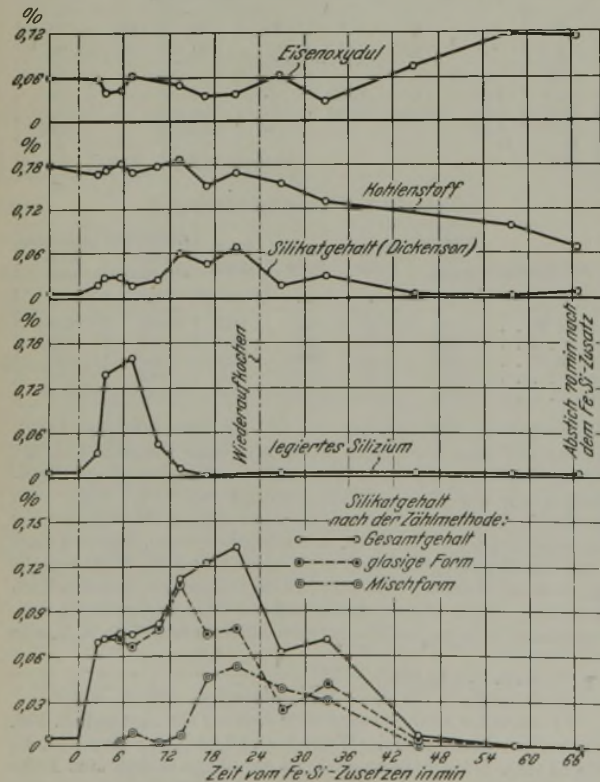 %
0,12
Eisenoxydul
0,06
0
%
0,18
Kohlenstoff
0,12
0,06
Silikatgehalt (Dickenson)
0
%
0,18
0,12
0,06
0
Wiederaufkochen
legiertes Silizium
Abstich 70 min nach
dem Fe-Si-Zusatz
%
0,15
0,12
0,09
0,06
0,03
0
Silikatgehalt
nach der Zählmethode:
Gesamtgehalt
glasige Form
Mischform
0 6 12 18 24 30 36 42 48 54 60 66
Zeit vom Fe-Si-Zusetzen in min